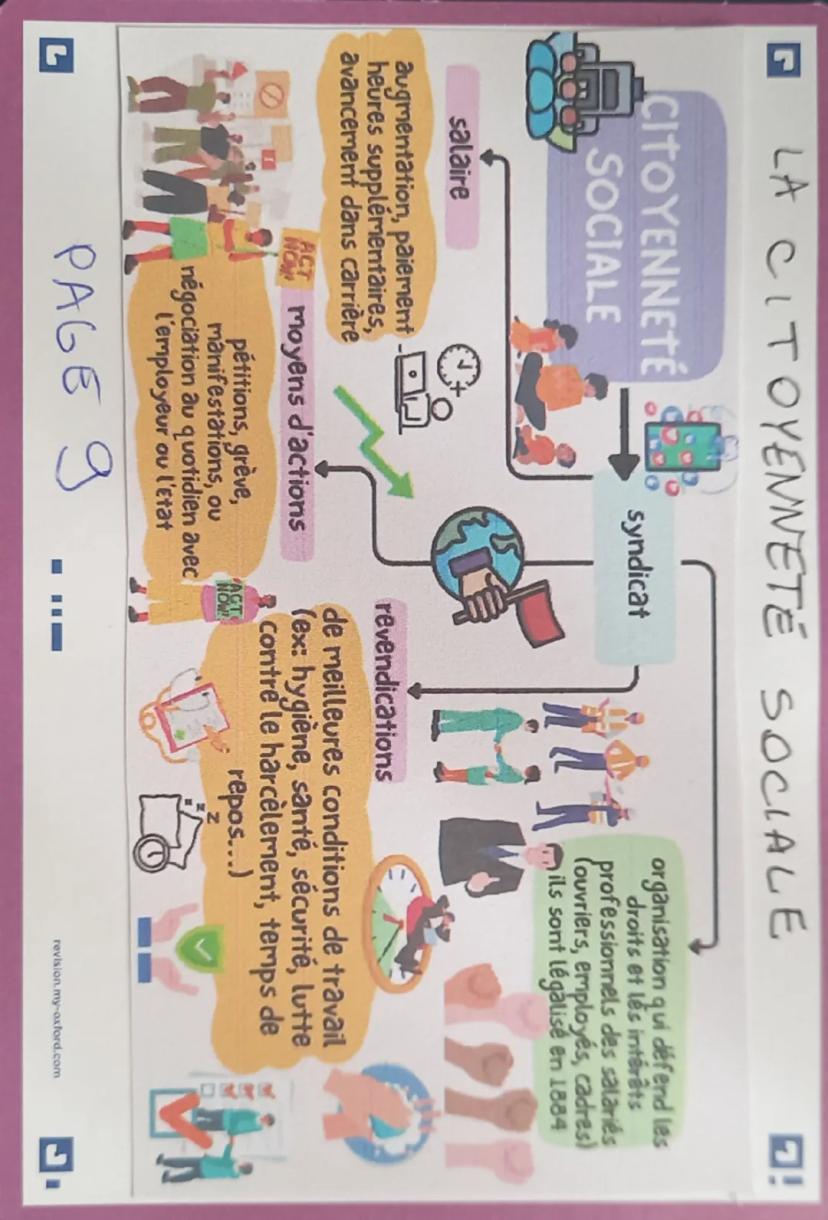 LA CITOYENNETÉ SOCIALE
CITOYENNETÉ
SOCIALE
syndicat
organisation qui défend les
droits et lés intérêts
professionnels des salariés
(ouvriers, employés, cadres)
ils sont légalisé en 1884
salaire
augmentation, paiement
heures supplémentaires,
avancement dans carrière
revendications
de meilleures conditions de travail
(ex: hygiène, santé, sécurité, lutte
contre le harcèlement, temps de
repos...)
moyens d'actions
ACT
NOW!
pétitions, grève,
manifestations, ou
négociation au quotidien avec
l'employeur ou l'Etat
ACT
NOW!
z z z
PAGE 9
revision.my-oxford.com